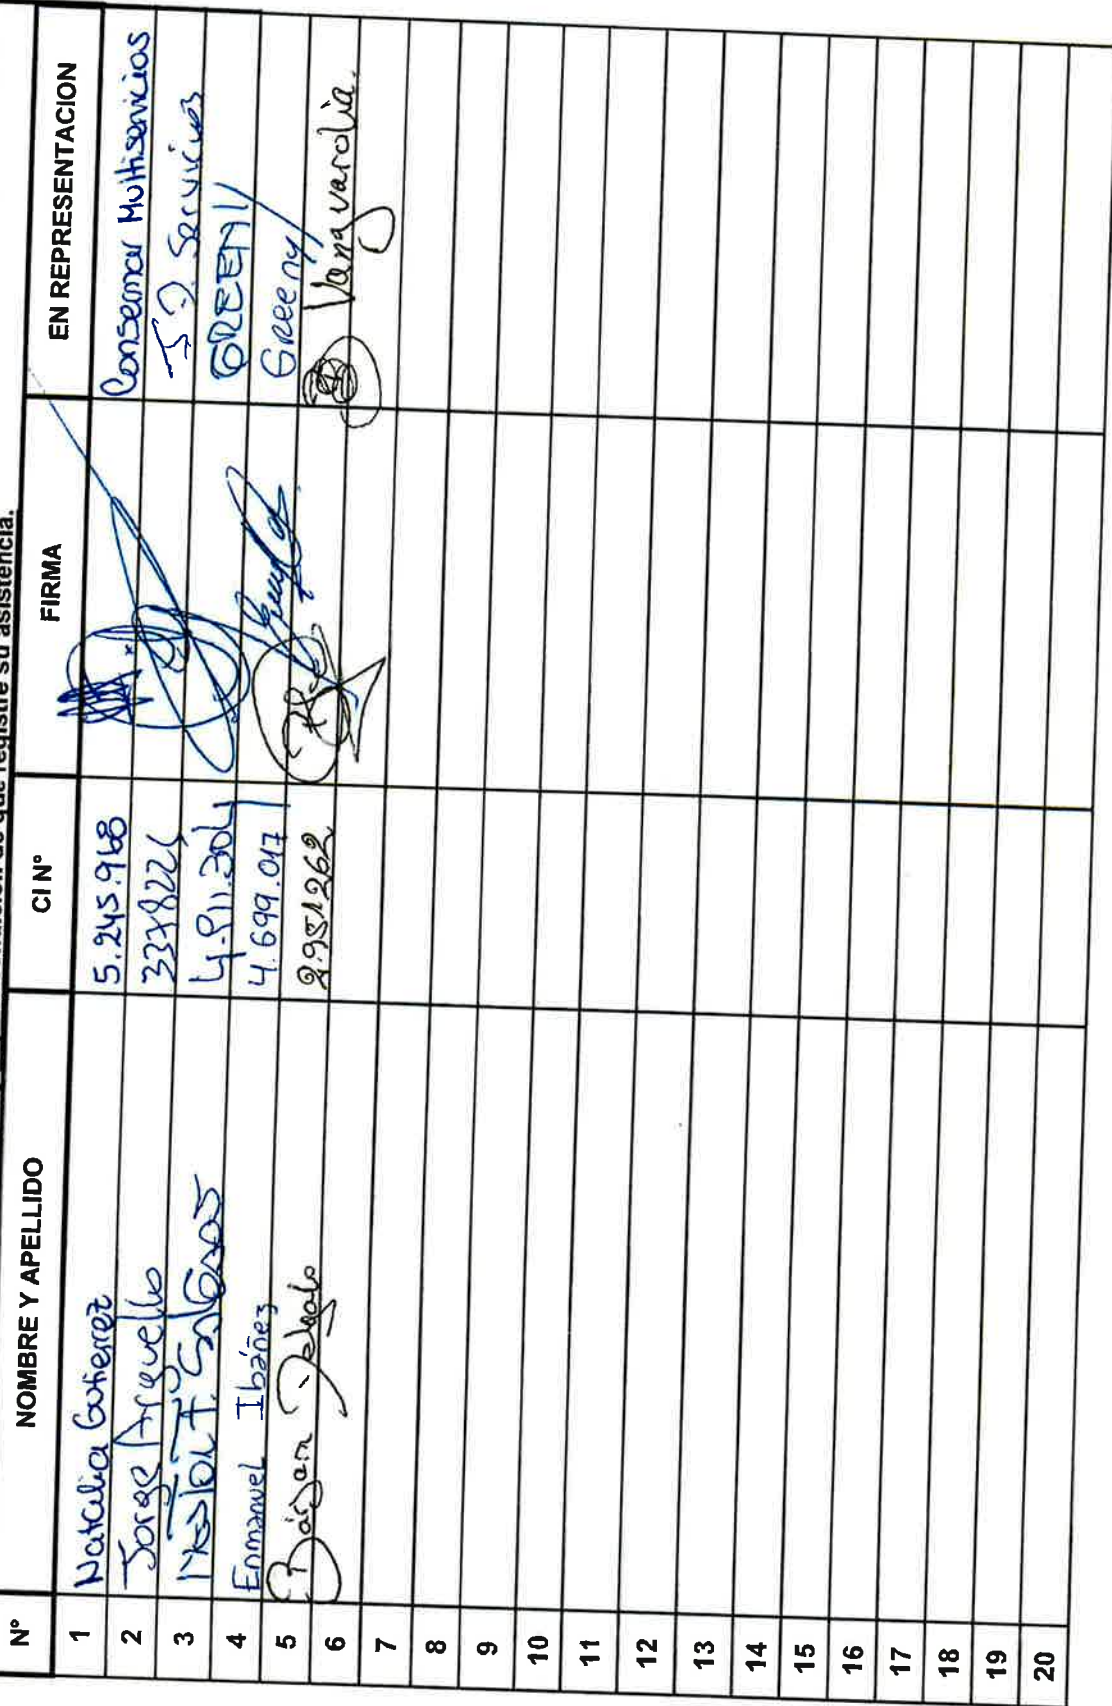 que registre su asistencia.
N° NOMBRE Y APELLIDO CI N° FIRMA EN REPRESENTACION
1 Natalia Gutierrez 5.245.968 Consermar Multiservicios
2 Jorge Arguello J D Servicios
3 GREENY
4 Enmanuel Ibáñez 4.699.017 Greeny
5 2.951262 Vanguardia.
6
7
8
9
10
11
12
13
14
15
16
17
18
19
20